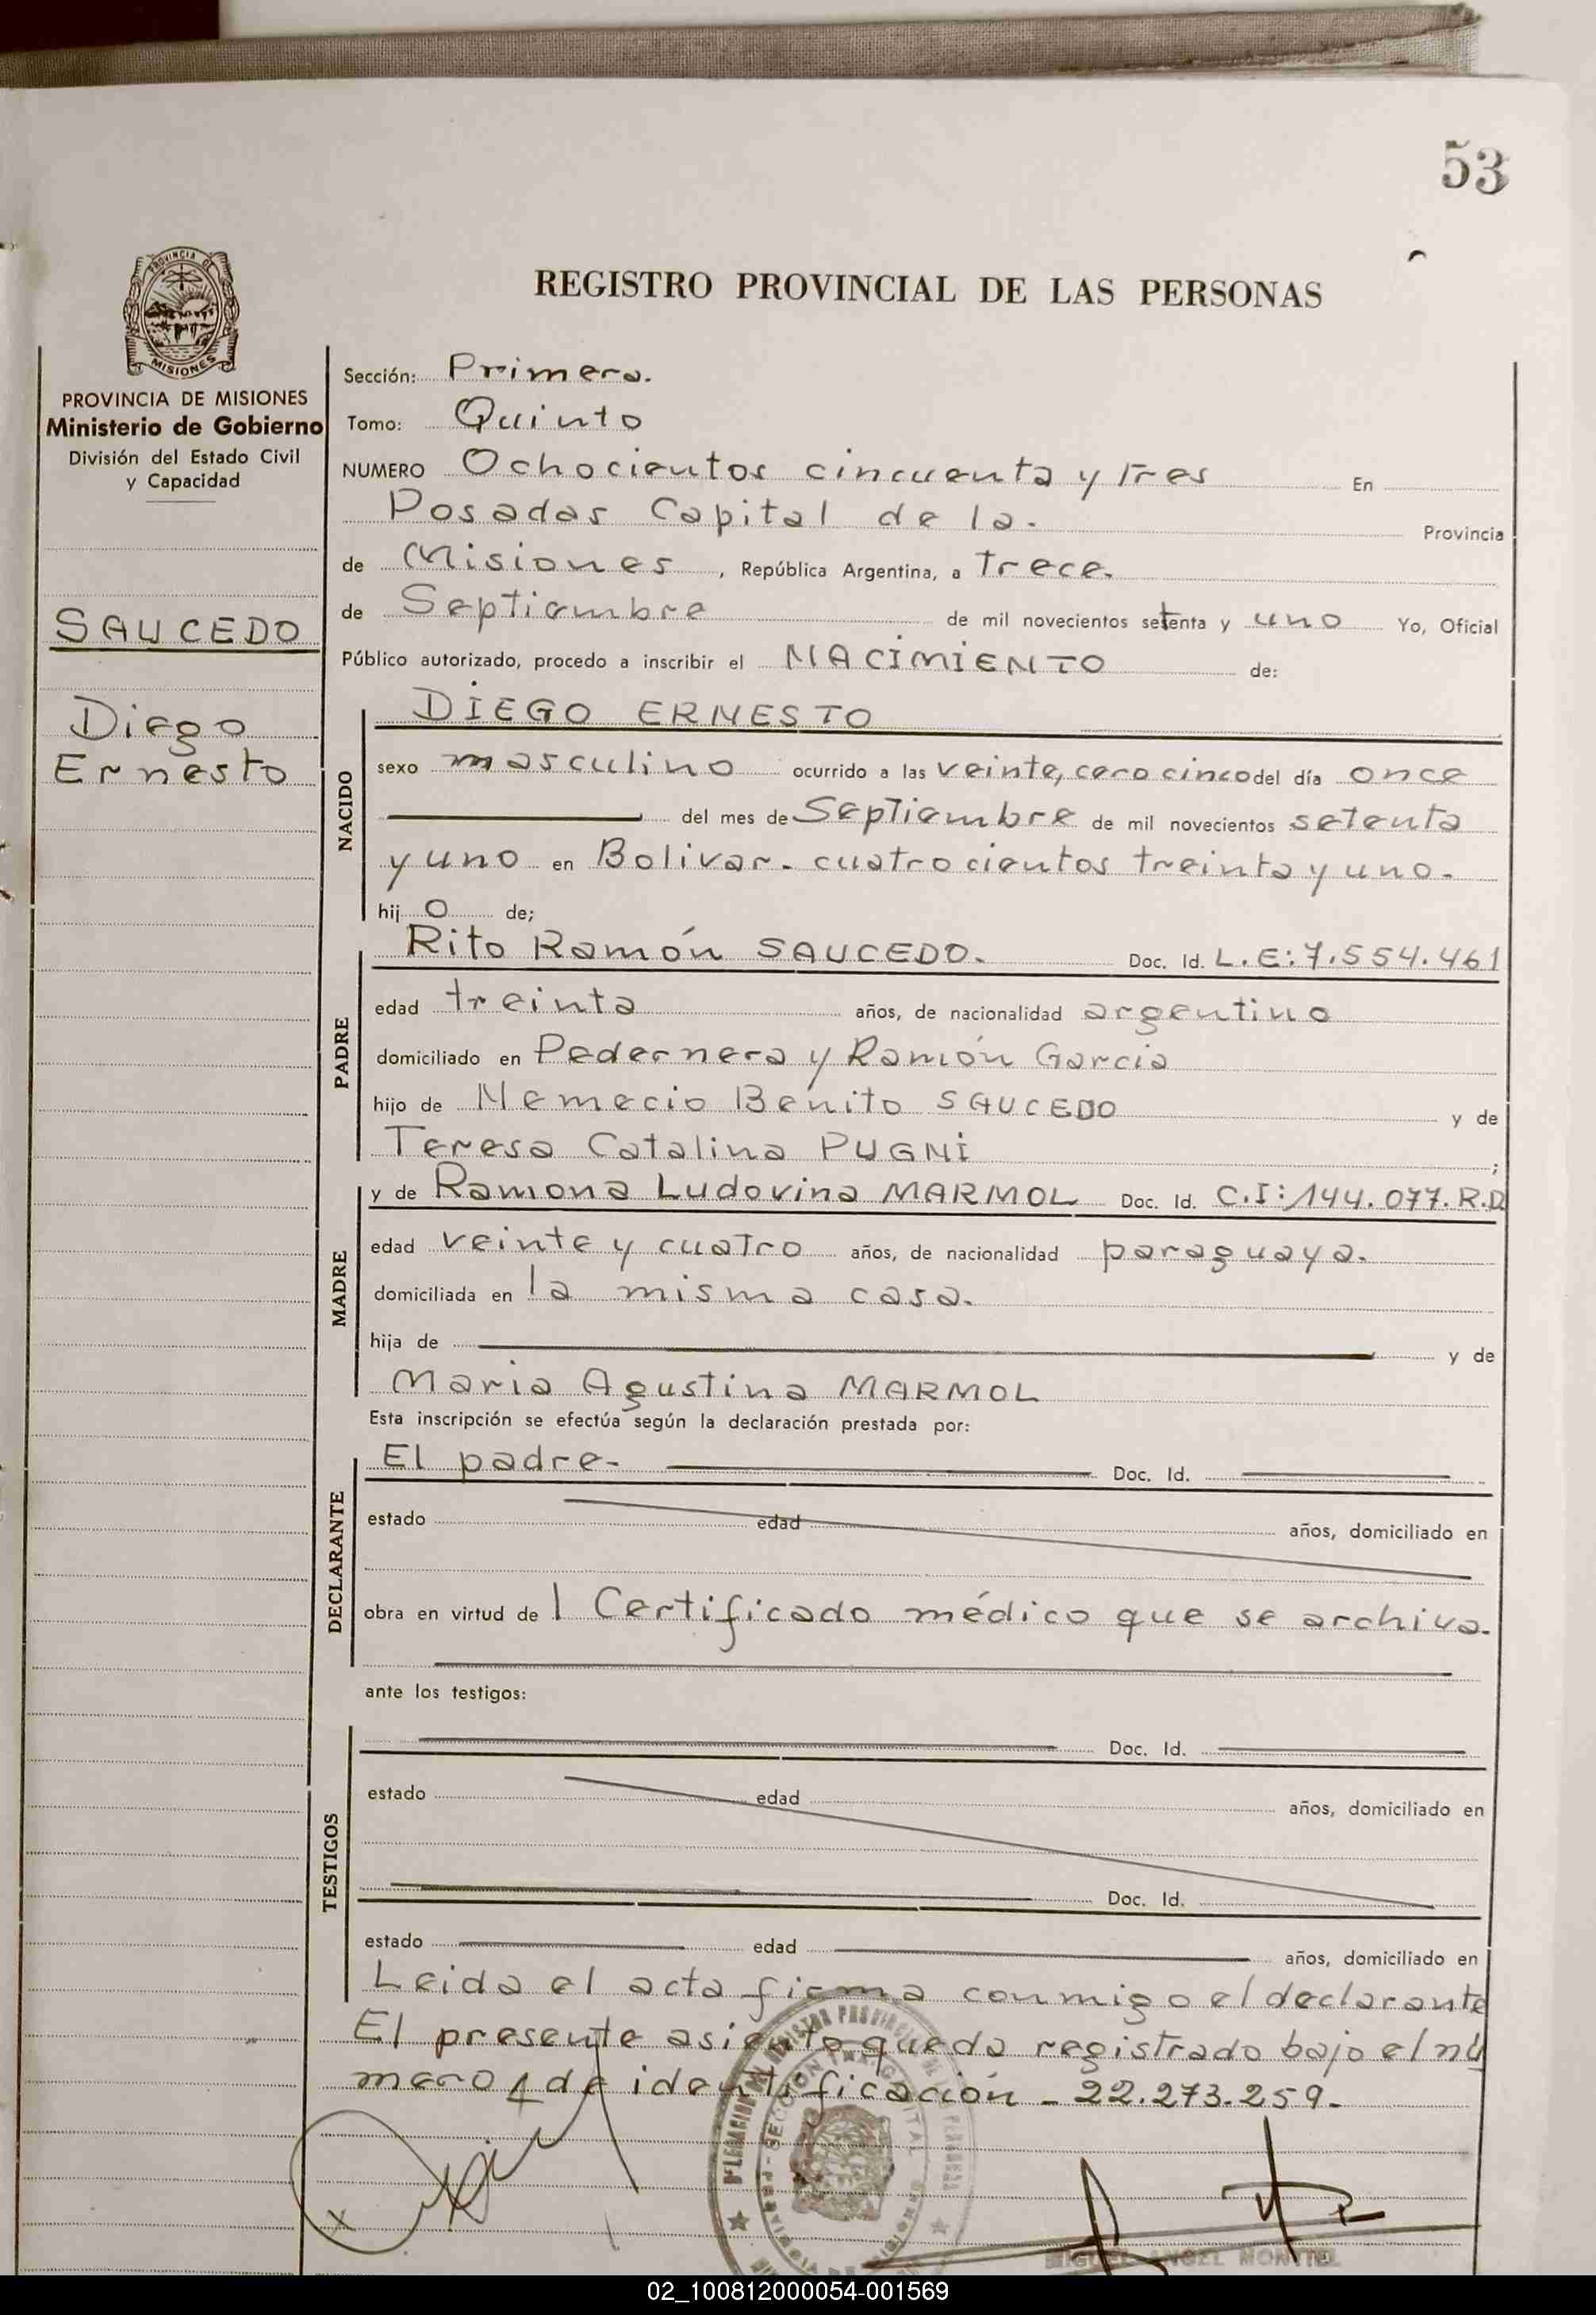 53
REGISTRO PROVINCIAL DE LAS PERSONAS
PROVINCIA DE
MISIONES
PROVINCIA DE MISIONES
Ministerio de Gobierno
División del Estado Civil
y Capacidad
SAUCEDO
Diego
Ernesto
Sección: Primera.
Tomo: Quinto
NUMERO Ochocientos cincuenta y Tres En
Posadas Capital de la. Provincia
de Misiones, República Argentina, a Trece.
de Septiembre de mil novecientos setenta y uno Yo, Oficial
Público autorizado, procedo a inscribir el NACIMIENTO de:
NACIDO
DIEGO ERNESTO
sexo masculino ocurrido a las veinte, cero cinco del día once
del mes de Septiembre de mil novecientos setenta
y uno en Bolivar. cuatrocientos treinta y uno.
hij o de;
PADRE
Rito Ramón SAUCEDO. Doc. Id. L.E: 7.554.461
edad treinta años, de nacionalidad argentino
domiciliado en Pedernera y Ramón Garcia
hijo de Nemecio Benito SAUCEDO y de
Teresa Catalina PUGNI ;
MADRE
y de Ramona Ludovina MARMOL Doc. Id. C.I: 144.077. R.P.
edad veinte y cuatro años, de nacionalidad paraguaya.
domiciliada en la misma casa.
hija de y de
Maria Agustina MARMOL
Esta inscripción se efectúa según la declaración prestada por:
DECLARANTE
El padre- Doc. Id.
estado edad años, domiciliado en
obra en virtud de l Certificado médico que se archiva.
ante los testigos:
TESTIGOS
Doc. Id.
estado edad años, domiciliado en
Doc. Id.
estado edad años, domiciliado en
Leida el acta firma conmigo el declarante
El presente asiento queda registrado bajo el nú
mero de identificación - 22.273.259.
MIGUEL ANGEL
02_100812000054-001569